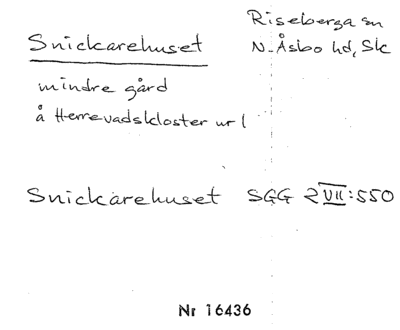 Snickarehuset
Riseberga sn
N. Åsbo hd, Sk
mindre gård
å Herrevadskloster url
Snickarehuset SGG 2 VII:550
Nr 16436